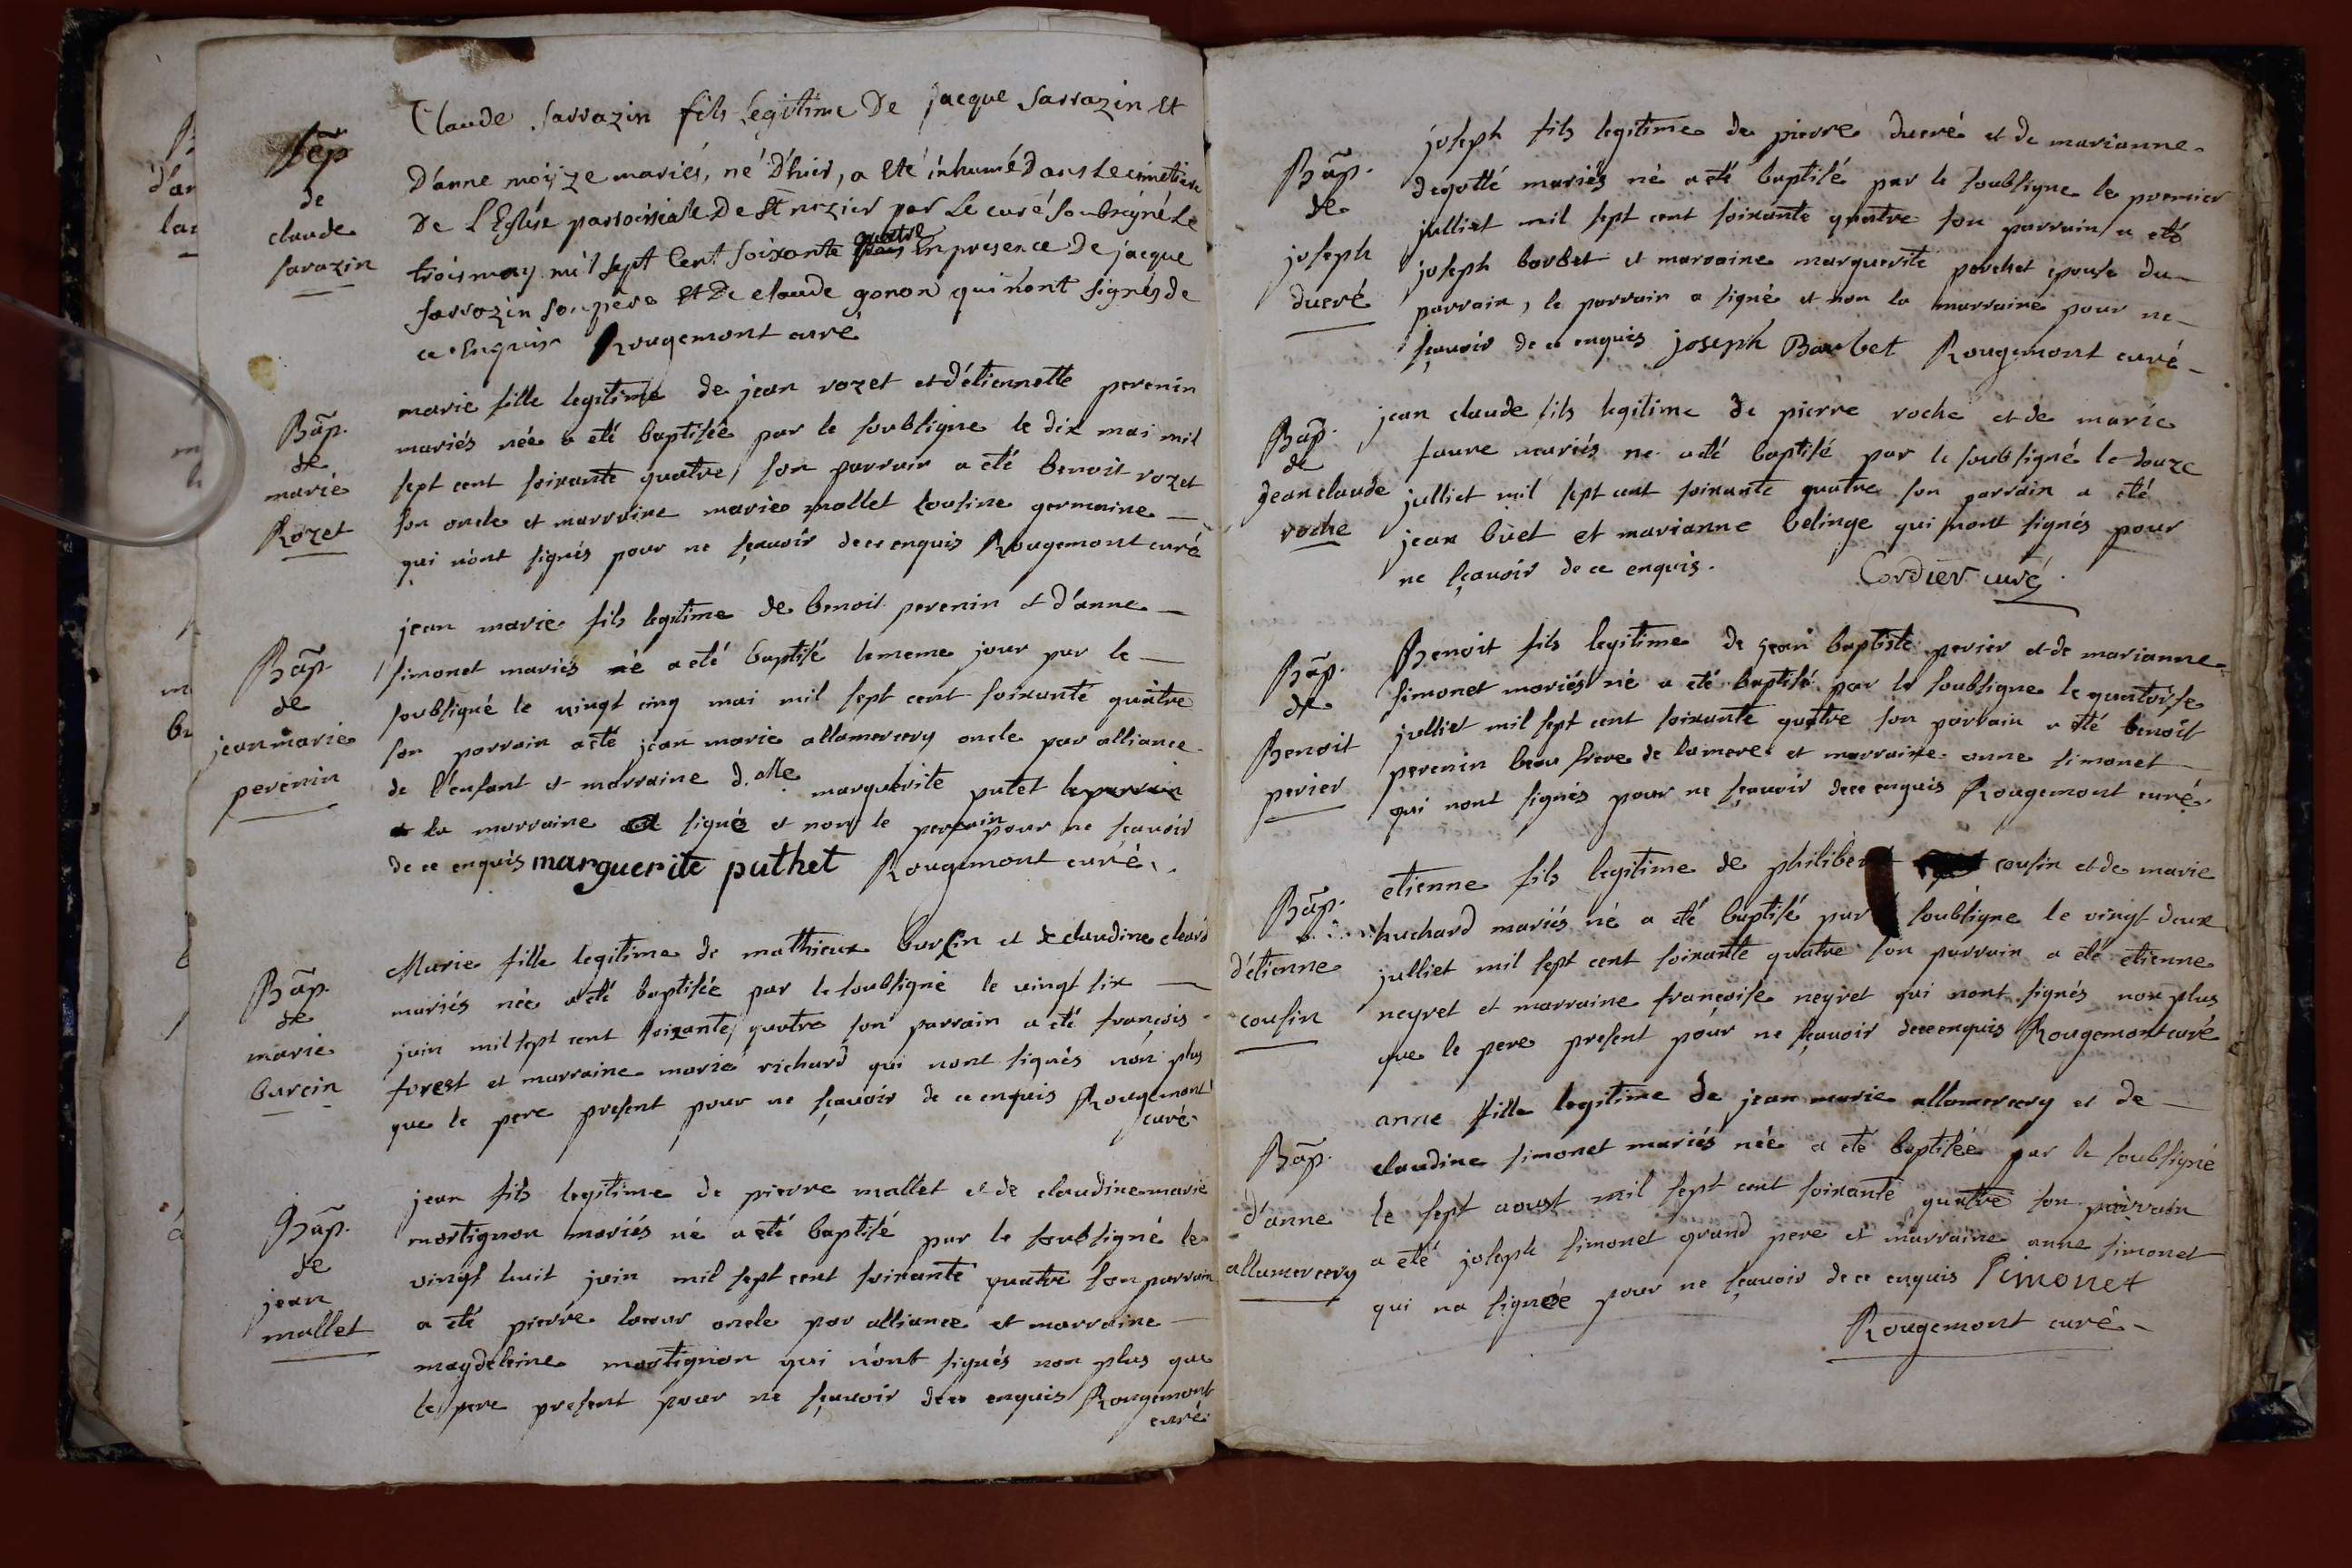 Sep
de
claude
sarazin
Claude Sarrazin fils legitime De jacque Sarrazin et
D'anne moyze mariés, né D'hier, a eté inhumé Dans le cimetiere
De L'Eglise parroissiale De St nizier par Le curé Soubsigné Le
trois may mil sept Cent soixante quatre En presence De jacque
sarrazin son père Et De claude gonon qui n'ont signés de
ce Enquis Rougemont curé
Bap.
de
marie
Rozet
marie fille legitime de jean rozet et d'étiennette perenin
mariés née a eté baptisée par le soubsigne le dix mai mil
sept cent soixante quatre, son parrain a été benoit rozet
son oncle et marraine marie mallet cousine germaine
qui n'ont signés pour ne sçauoir de ce enquis Rougemont curé
Bap.
de
jean marie
perenin
jean marie fils legitime de benoit perenin et d'anne
simonet mariés né a eté baptisé le meme jour par le
soubsigné le vingt cinq mai mil sept cent soixante quatre
son parrain a eté jean marie allamercery oncle par alliance
de l'enfant et marraine d.elle marguerite putet le parrain
et la marraine a signé et non le perrain pour ne scauoir
de ce enquis marguerite puthet Rougemont curé.
Bap.
de
marie
burcin
Marie fille legitime de mathieux burcin et de claudine cleard
mariés née a eté baptisée par le soubsigné le vingt six
juin mil sept cent soixante quatre son parrain a eté françois
forest et marraine marie richard qui nont signés non plus
que le pere present pour ne sçauoir de ce enquis Rougemont
curé
Bap.
de
jean
mallet
jean fils legitime de pierre mallet et de claudine marie
mortignon mariés né a eté baptisé par le soubsigné le
vingt huit juin mil sept cent soixante quatre son parrain
a eté pierre lacour oncle par alliance et marraine
magdeleine mortignon qui n'ont signés non plus que
le pere present pour ne sçauoir de ce enquis Rougemont
curé
Bap.
de
joseph
ducré
joseph fils legitime de pierre ducré et de marianne
degotté mariés né a eté baptisé par le soubsigne le premier
julliet mil sept cent soixante quatre son parrain a eté
joseph barbet et marraine marguerite perchet epouse du
parrain, le parrain a signé et non la marraine pour ne
sçauoir de ce enquis joseph Barbet Rougemont curé
Bap.
de
Jean claude
roche
jean claude fils legitime de pierre roche et de marie
faure mariés né a été baptisé par le soubsigné le douze
julliet mil sept cent soixante quatre son parrain a eté
jean buet et marianne belinge qui n'ont signés pour
ne sçauoir de ce enquis. Cordier curé.
Bap.
de
Benoit
perier
Benoit fils legitime de jean baptiste perier et de marianne
simonet mariés né a eté baptisé par le soubsigne le quatorse
julliet mil sept cent soixante quatre son parrain a été benoit
perenin beau frere de la mere et marraine anne simonet
qui nont signés pour ne sçauoir de ce enquis Rougemont curé
Bap.
d'étienne
cousin
etienne fils legitime de philibert cousin et de marie
huchard mariés né a eté baptisé par soubsigne le vingt deux
julliet mil sept cent soixante quatre son parrain a eté etienne
neyret et marraine françoise neyret qui nont signés non plus
que le pere present pour ne sçauoir de ce enquis Rougemont curé
Bap.
d'anne
allamercery
anne fille legitime de jean marie allamercery et de
claudine simonet mariés née a eté baptisée par le soubsigné
le sept aoust mil sept cent soixante quatre son parrain
a eté joseph simonet grand pere et marraine anne simonet
qui na signée pour ne sçauoir de ce enquis Simonet
Rougemont curé